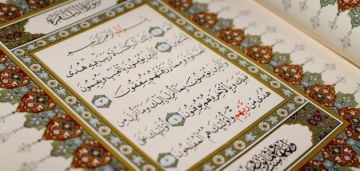 بِسْمِ اللّٰهِ الرَّحْمٰنِ الرَّحِيمِ
الٓمٓ ذٰلِكَ الْكِتَابُ لَا رَيْبَ فِيهِ هُدًى
لِلْمُتَّقِينَ الَّذِينَ يُؤْمِنُونَ بِالْغَيْبِ وَيُقِيمُونَ
الصَّلٰوةَ وَمِمَّا رَزَقْنَاهُمْ يُنْفِقُونَ
وَالَّذِينَ يُؤْمِنُونَ بِمَا أُنْزِلَ إِلَيْكَ وَمَا أُنْزِلَ مِنْ
قَبْلِكَ وَبِالْآخِرَةِ هُمْ يُوقِنُونَ أُولٰئِكَ عَلٰى
هُدًى مِنْ رَبِّهِمْ وَأُولٰئِكَ هُمُ الْمُفْلِحُونَ